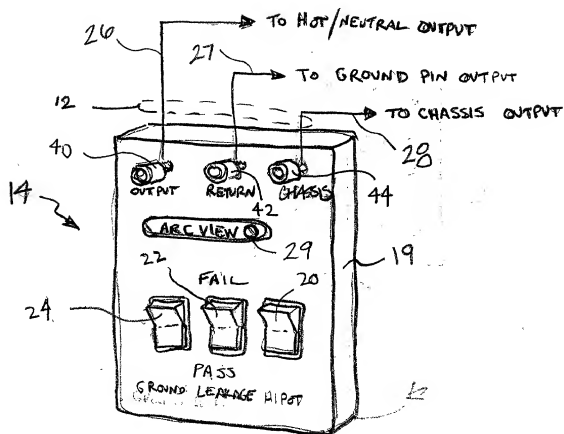 26
TO HOT/NEUTRAL OUTPUT
27
TO GROUND PIN OUTPUT
12
TO CHASSIS OUTPUT
28
40
OUTPUT
RETURN
CHASSIS
42
44
14
ARC VIEW
29
19
22
FAIL
20
24
PASS
GROUND LEAKAGE HIPOT